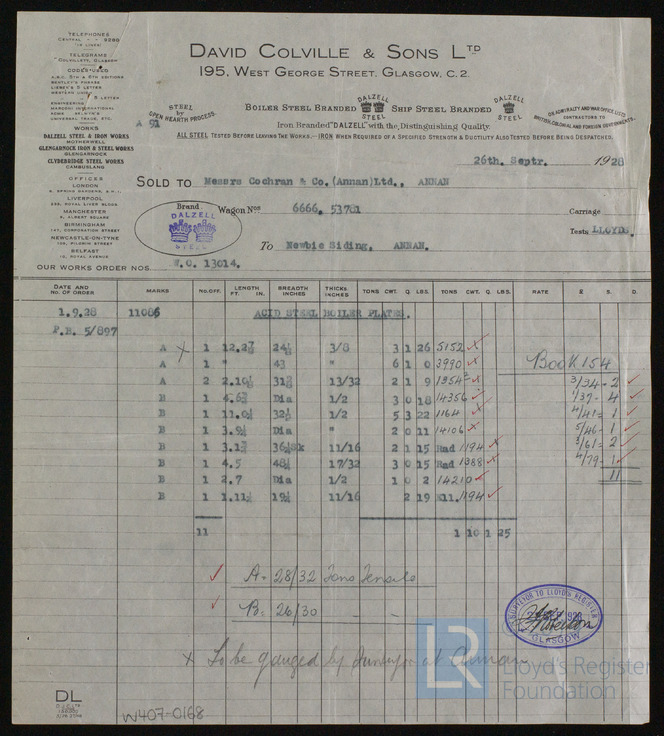 TELEPHONES
CENTRAL - - 9288
TELEGRAMS
COLVILLETT, GLASGOW
CODES USED
A.B.C. 5TH & 6TH EDITIONS
BENTLEY'S PHRASE
LIEBER'S 5 LETTER
WESTERN UNION
5 LETTER
ENGINEERING
MARCONI INTERNATIONAL
WORKS
DALZELL STEEL & IRON WORKS
MOTHERWELL
GLENGARNOCK IRON & STEEL WORKS
GLENGARNOCK
CLYDEBRIDGE STEEL WORKS
CAMBUSLANG
OFFICES
LONDON
LIVERPOOL
MANCHESTER
BIRMINGHAM
NEWCASTLE-ON-TYNE
BELFAST
DAVID COLVILLE & SONS LTD
195, WEST GEORGE STREET, GLASGOW, C.2.
A 91
STEEL BY OPEN HEARTH PROCESS.
BOILER STEEL BRANDED DALZELL STEEL SHIP STEEL BRANDED DALZELL STEEL
ON ADMIRALTY AND WAR OFFICE LISTS
CONTRACTORS TO BRITISH, COLONIAL AND FOREIGN GOVERNMENTS.
Iron Branded "DALZELL" with the Distinguishing Quality.
ALL STEEL TESTED BEFORE LEAVING THE WORKS.—IRON WHEN REQUIRED OF A SPECIFIED STRENGTH & DUCTILITY ALSO TESTED BEFORE BEING DESPATCHED.
26th. Septr. 1928
SOLD TO Messrs Cochran & Co.(Annan)Ltd., ANNAN
Brand. DALZELL STEEL
Wagon Nos 6666. 53781
Carriage
Tests LLOYDS.
To Newbie Siding, ANNAN.
OUR WORKS ORDER NOS. W.O. 13014.
DATE AND NO. OF ORDER MARKS NO. OFF. LENGTH FT. IN. BREADTH INCHES THICKS INCHES TONS CWT. Q LBS. TONS CWT. Q LBS. RATE £ S. D.
1.9.28 11086 ACID STEEL BOILER PLATES.
P.B. 5/897
A x 1 12.2⅞ 24½ 3/8 3 1 26 5152
A 1 " 43 " 6 1 0 3990
Book 154
A 2 2.10½ 31⅞ 13/32 2 1 9 1354 3/34 - 2
B 1 4.6¾ Dia 1/2 3 0 18 14356 1/37 - 4
B 1 11.0½ 32½ 1/2 5 3 22 1164 4/41 - 1
B 1 3.9½ Dia " 2 0 11 14106 5/46 - 1
B 1 11/16 2 1 15 Rad 1194 3/61 - 2
B 1 4.5 48½ 17/32 3 0 15 Rad 1388 4/79 - 1
B 1 2.7 Dia 1/2 1 0 2 14210 11
B 1 1.11½ 19½ 11/16 2 19 Ell. 1194
11 1 10 1 25
A = 28/32 Tons Tensile
B = 26/30
SURVEYOR TO LLOYD'S REGISTER
GLASGOW
x To be gauged by Surveyor at Annan
LR
Lloyd's Register
Foundation
DL
W407-0168